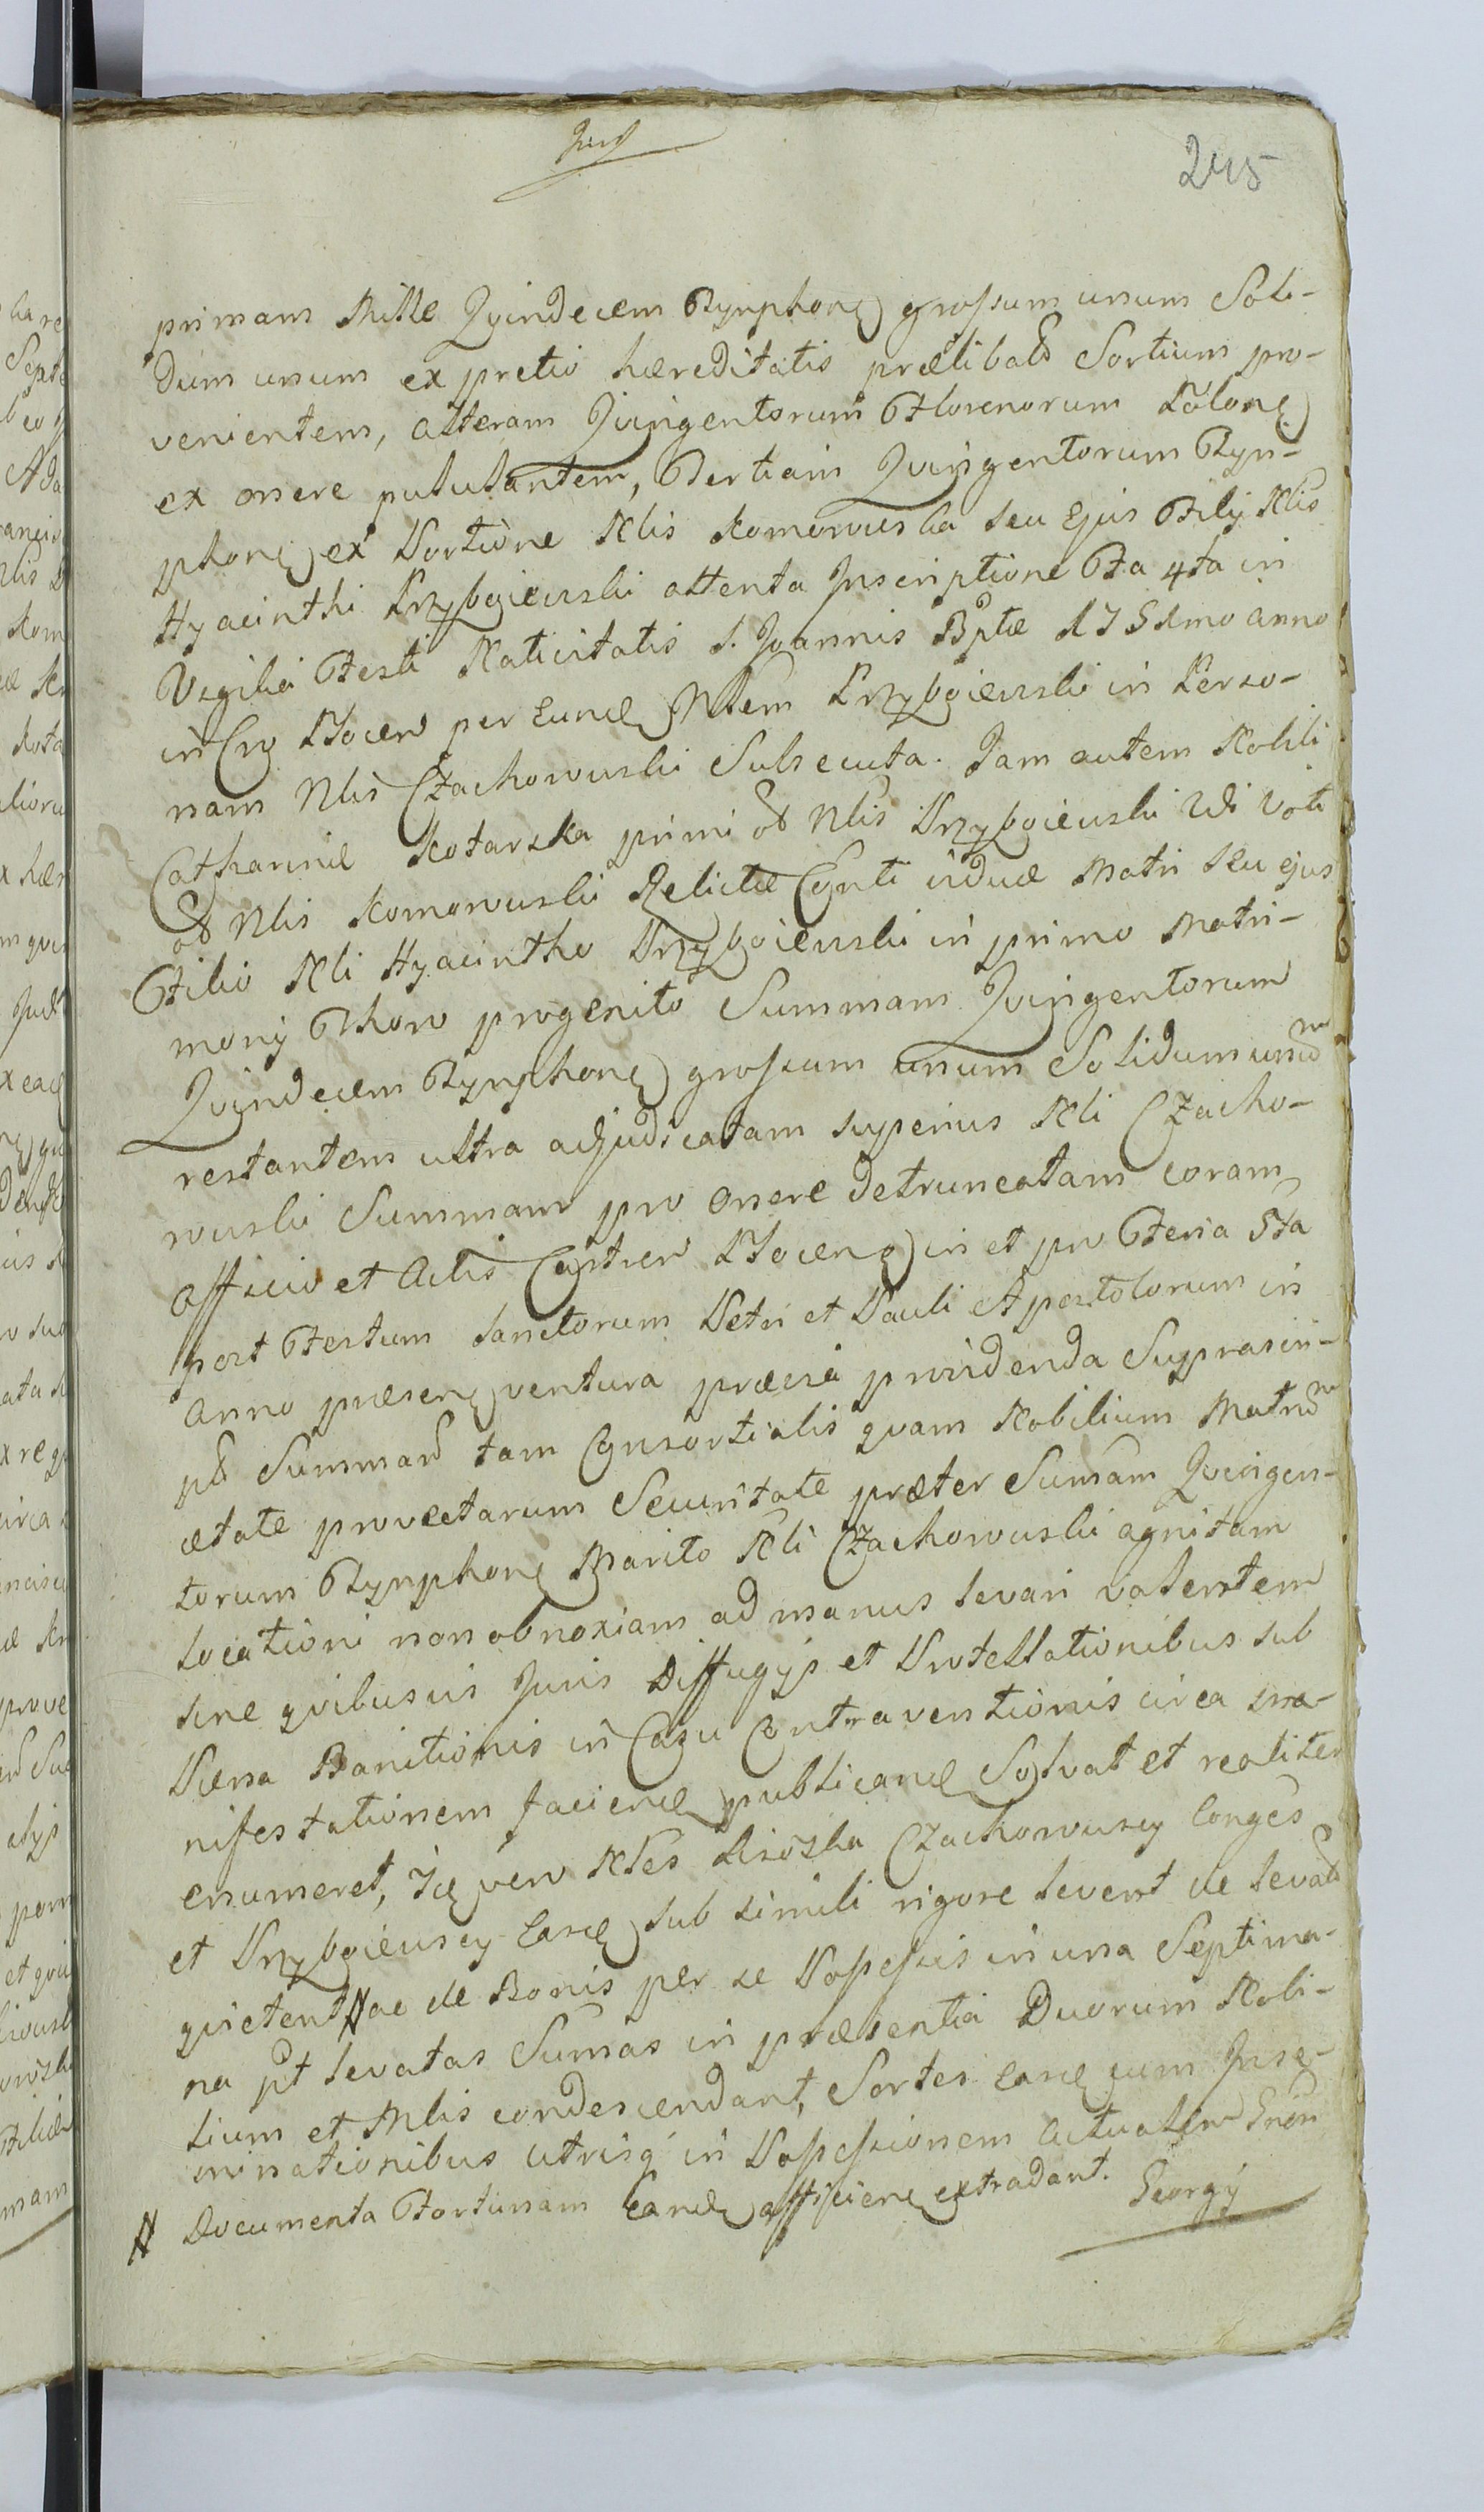 245
primam Mille Qvindecem Tynphonę grossum unum Soli-
dum unum ex pretio hæreditatis prælibatꝭ Sortium pro-
venientem, alteram Qvingentorum Florenorum Polonę
ex onere pululantem, Tertiam Qvingentorum Tyn-
phonę ex Portione Nlis Komorowska seu Ejus Filij Nlis
Hyacinthi Przyboiewski attenta Inscriptione Fa 4ta in
Vigilia Festi Nativitatis S. Joannis Bptæ 175 imo anno
in Plocen per eundę Nlem Przyboiewski in Perso-
nam Nlis Czachorowski Subsecuta. Jam autem Nobili
Catharinæ Kotarska primi od Nlis Przyboiewski 2di Voti
od Nlis Komorowski Relictæ viduæ Matri seu ejus
Filio Nli Hyacintho Przyboiewski in primo Matri-
monij Thoro progenito Summam Qvingentorum
Qvindecem Tynphonę grossum unum Solidum unum
restantem ultra adjudicatam superius Nli Czacho-
rowski Summam pro onere detruncatam coram
Officio et Actis Castren Plocenę in et pro Feria 5ta
post Festum Sanctorum Petri et Pauli Apostolorum in
Anno præsenę ventura præviâ providenda Suprascri-
ptꝭ Summarꝭ tam Consortialis qvam Nobilium Matrum
ætate provectarum Securitate præter Sumam Qvingen-
torum Tynphonę Marito Nli Czachorowski agnitam
locationi non obnoxiam ad manus levari valentem
sine qvibusvis Juris Diffugijs et Protestationibus sub
Pæna Banitionis in Casu Contraventionis circa ma-
nifestationem faciendę publicandę Solvat et realiter
enumeret, vero Nles Czachorowscy Conges
et Przyboiewscy Easdę sub simili rigore levent de levatꝭ
qvietent # ac de Bonis per se Possessis in una Septima-
na pt levatas Sumas in præsentia Duorum Nobi-
lium et Mlis condescendant, Sortes easdę cum Inse-
minationibus utrisq in Possessionem Actualem
# Documenta Fortunam eandę afficienę extradant. Georgÿ